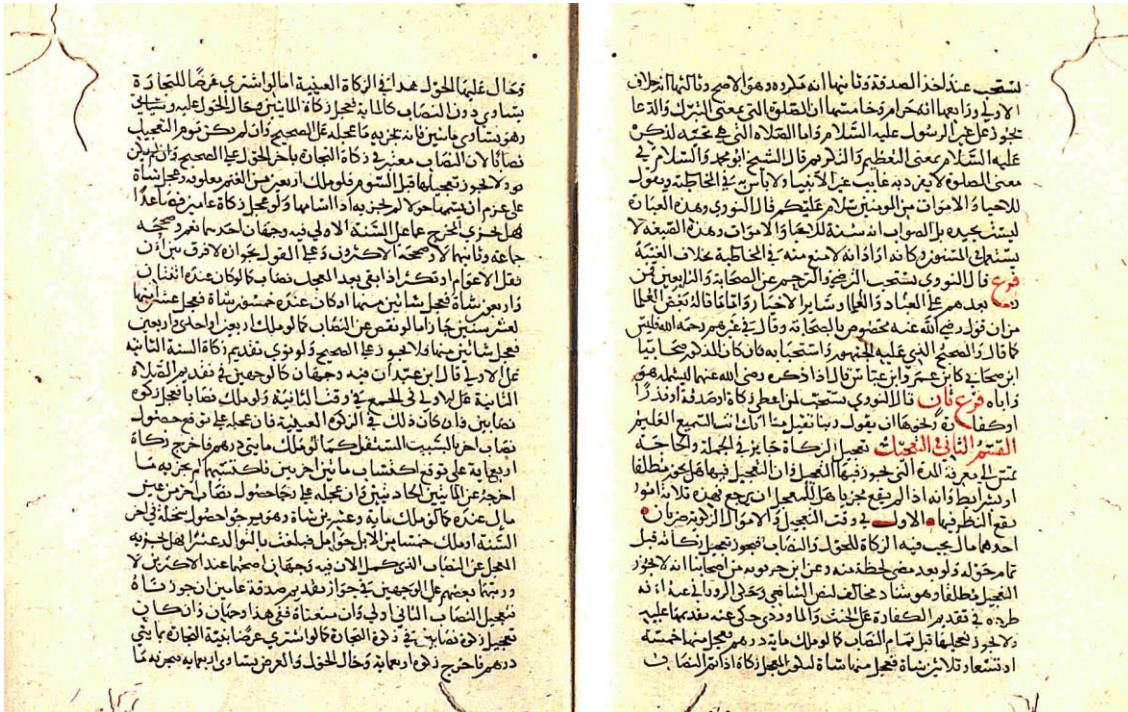 تستحب عند اخذ الصدقة وثانيها انه مكروه وهو الاصح وثالثها انه خلاف
الاولى ورابعها انه حرام وخامسها ان الصلوة التي بمعنى التبرك والدعا
تجوز على غير الرسول عليه السلام واما الصلاة التي هي تحية لذكره
عليه السلام بمعنى التعظيم والتكريم قال الشيخ ابو محمد والسلام في
معنى الصلوة لا يفرد به غايب غير الانبيا ولا باس به في المخاطبة ويقول
للاحياء والاموات من المومنين سلام عليكم قال النووي وهذه العبارة
ليست بجيدة بل الصواب انه سنة للاحيا والاموات وهذه الصيغة لا
تستعمل في المسنون وكانه اراد انه لا منع منه في المخاطبة بخلاف الغيبة
فرع قال النووي يستحب الترضي والترحم عن الصحابة والتابعين فمن
بعدهم من العباد والعلما وساير الاخيار واما ما قاله بعض العلما
من ان قول رضي الله عنه مخصوص بالصحابة وقال في غيرهم رحمه الله فليس
كما قال والصحيح الذي عليه الجمهور استحبابه فان كان المذكور صحابيا
ابن صحابي كابن عمر وابن عباس قال اذا ذكره رضي الله عنهما ليشمله هو
واباه فرع ثان قال النووي يستحب لمن اعطى زكاة او صدقة او نذرا
او كفارة ونحوها ان يقول ربنا تقبل منا انك انت السميع العليم
القسم الثاني في التعجيلات تعجيل الزكاة جايز في الجملة والحاجة
تمس الى معرفة المدة التي يجوز فيها التعجيل وان التعجيل فيها هل يجوز مطلقا
او بشرايط وانه اذا لم يقع مجزيا هل للمعجل ان يرجع فهذه ثلاثة امور
يقع النظر فيها الاول في وقت التعجيل والاموال الزكوية ضربان
احدهما مال يجب فيه الزكاة للحول والنصاب فيجوز تعجيل زكاته قبل
تمام حوله ولو بعد مضي لحظة منه وعن ابن حربويه من اصحابنا انه لا يجوز
التعجيل مطلقا وهو شاذ مخالف لنص الشافعي وحكى الروياني عنه انه
طرده في تقديم الكفارة على الحنث والماوردي حكى عنه تقديمها عليه
ولا يجوز تعجيلها قبل تمام النصاب كما لو ملك ماية درهم فعجل منها خمسة
او تسعا وثلاثين شاة فعجل منها شاة لتكون المعجل زكاة اذا تم النصاب
وحال عليها الحول هذا في الزكاة العينية اما لو اشترى عرضا للتجارة
يساوي دون النصاب كالماية فعجل زكاة المايتين وحال الحول عليه
وهو يساوي مايتين فانه يجزيه ما عجله على الصحيح وان لم يكن يوم التعجيل
نصابا لان النصاب معتبر في زكاة التجارة باخر الحول على الصحيح
ولا يجوز تعجيلها قبل السوم فلو ملك اربعين من الغنم معلوفة وعجل شاة
على عزم ان يسيمها حولا لم يجزيه اذا اسامها ولو عجل زكاة عامين فصاعدا
فهل يجزي المخرج عما عدا السنة الاولى فيه وجهان احدهما نعم وصححه
جماعة وثانيهما لا وصححه الاكثرون وعلى القول بجوازه لا فرق بين ان
تقل الاعوام او تكثر اذا بقي بعد المعجل نصاب كما لو كان عنده اثنتان
واربعون شاة فعجل شاتين منها او كان عنده خمسون شاة فعجل عشرا منها
لعشر سنين جاز اما لو نقص عن النصاب كما لو ملك اربعين او احدى واربعين
فعجل شاتين منها فلا يجوز على الصحيح ولو نوى تقديم زكاة السنة الثانية
على الاولى قال ابن عبدان فيه وجهان كالوجهين في تقديم الصلاة
الثانية على الاولى في الجمع في وقت الثانية ولو ملك نصابا فعجل زكوة
نصابين فان كان ذلك في الزكوة العينية فان عجله على توقع حصول
نصاب اخر بالسبب المستقل كما لو ملك مايتي درهم فاخرج زكاة
اربعماية على توقع اكتساب مايتين اخريين فاكتسبهما لم يجزيه ما
اخرجه عن المايتين الحادثتين وان عجله على رجا حصول نصاب اخر من عين
مال عنده كما لو ملك ماية وعشرين شاة وهو يرجو حصول سخلة في اخر
السنة او ملك خمسا من الابل حوامل فبلغت بالتوالد عشرا فهل يجزيه
المعجل عن النصاب الذي كمل الان فيه وجهان اصحهما عند الاكثرين لا
ورتبهما بعضهم على الوجهين في جواز تقديم صدقة عامين ان جوزناه
فتعجيل النصاب الثاني اولى وان منعناه ففي هذا وجهان وان كان
تعجيل زكوة نصابين في زكوة التجارة كما لو اشترى عرضا بنية التجارة بمايتي
درهم فاخرج زكوة اربعماية وحال الحول والعرض يساوي اربعماية فيجزيه ما